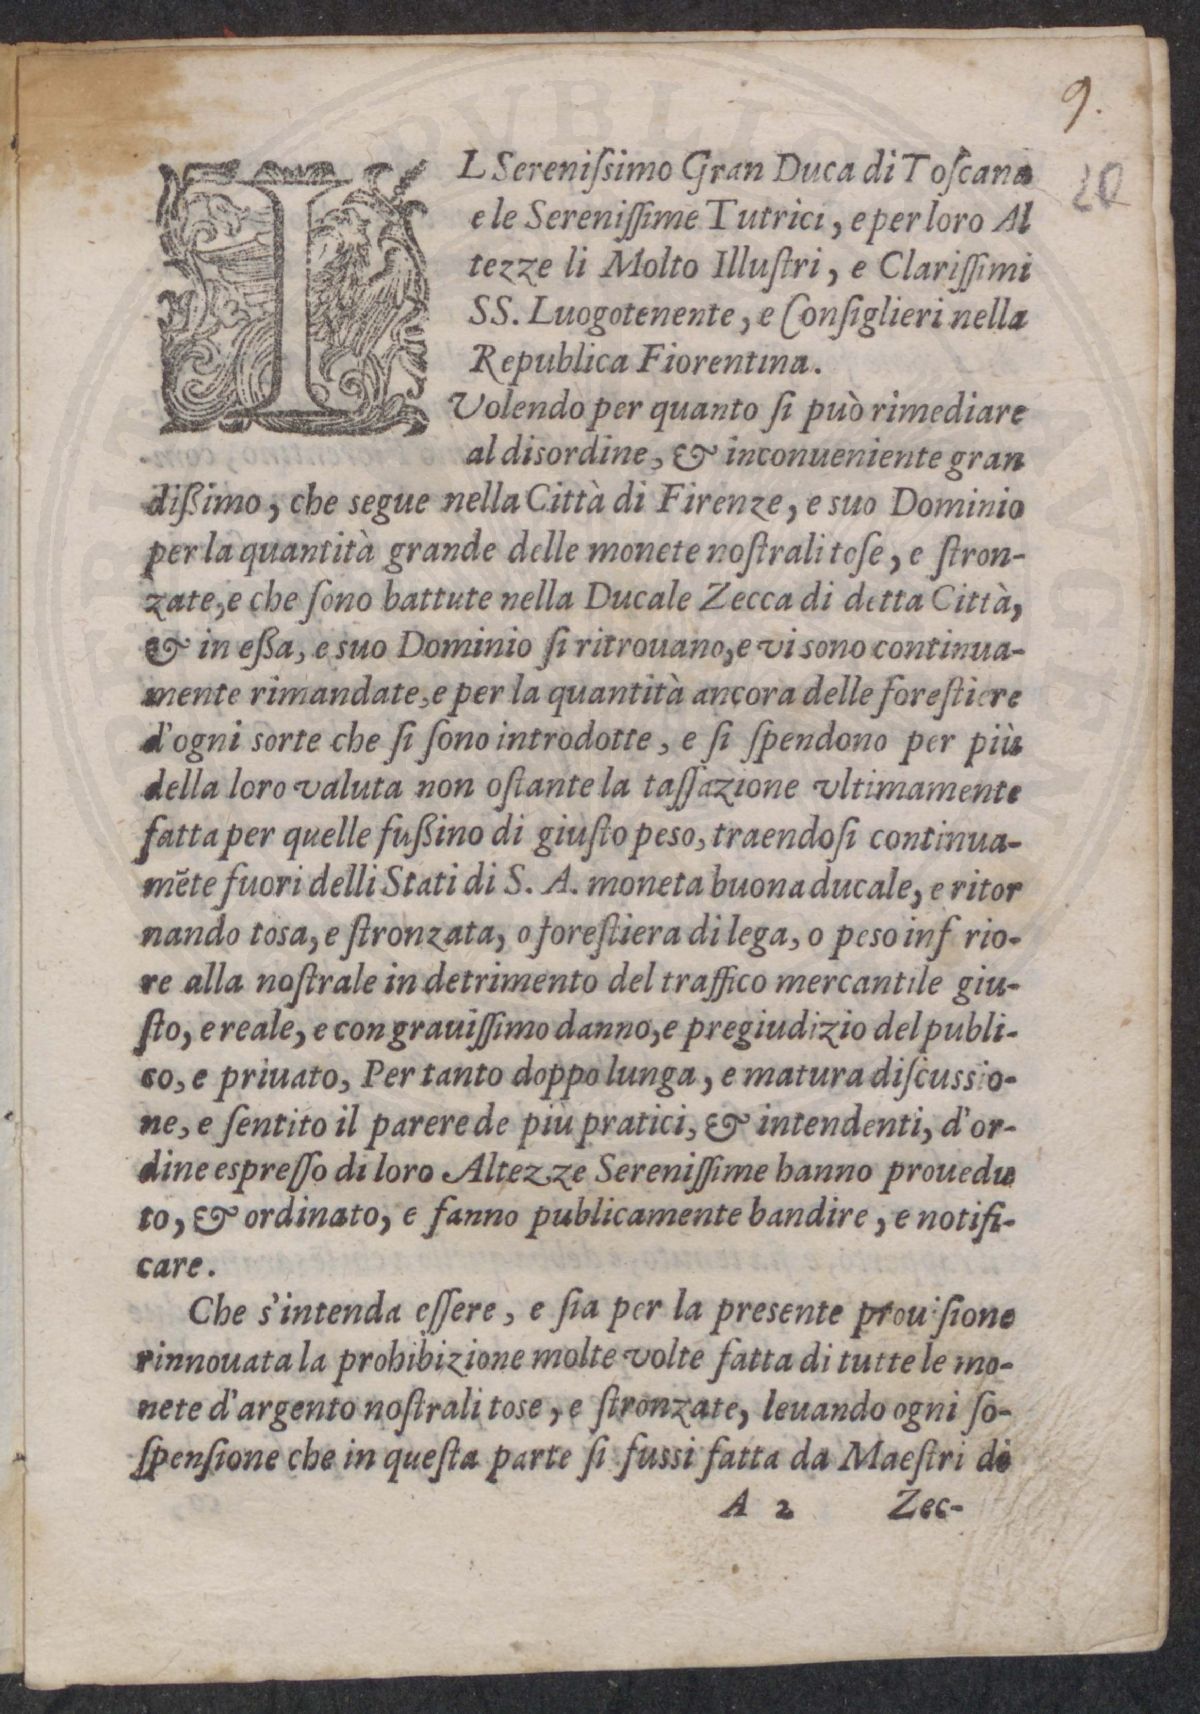 9.
20
IL Sereniſsimo Gran Duca di Toſcana
e le Sereniſſime Tutrici, e per loro Al
tezze li Molto Illuſtri, e Clariſſimi
SS. Luogotenente, e Conſiglieri nella
Republica Fiorentina.
Volendo per quanto ſi può rimediare
al disordine, & inconueniente gran
dißimo, che segue nella Città di Firenze, e suo Dominio
per la quantità grande delle monete noſtrali toſe, e ſtron-
zate, e che ſono battute nella Ducale Zecca di detta Città,
& in eßa, e suo Dominio ſi ritrouano, e vi sono continua-
mente rimandate, e per la quantità ancora delle foreſtiere
d'ogni sorte che ſi ſono introdotte, e ſi ſpendono per più
della loro valuta non oſtante la taſſazione vltimamente
fatta per quelle fußino di giuſto peso, traendoſi continua-
mẽte fuori delli Stati di S. A. moneta buona ducale, e ritor
nando tosa, e ſtronzata, o foreſtiera di lega, o peso inf rio-
re alla noſtrale in detrimento del traffico mercantile giu-
ſto, e reale, e con grauiſſimo danno, e pregiudizio del publi-
co, e priuato, Per tanto doppo lunga, e matura diſcussio-
ne, e ſentito il parere de piu pratici, & intendenti, d'or-
dine espreſſo di loro Altezze Sereniſſime hanno prouedu
to, & ordinato, e fanno publicamente bandire, e notifi-
care.
Che s'intenda eſſere, e ſia per la presente prouiſione
rinnouata la prohibizione molte volte fatta di tutte le mo-
nete d'argento noſtrali tose, e ſtronzate, leuando ogni ſo-
ſpenſione che in queſta parte ſi fussi fatta da Maeſtri di
A 2 Zec-